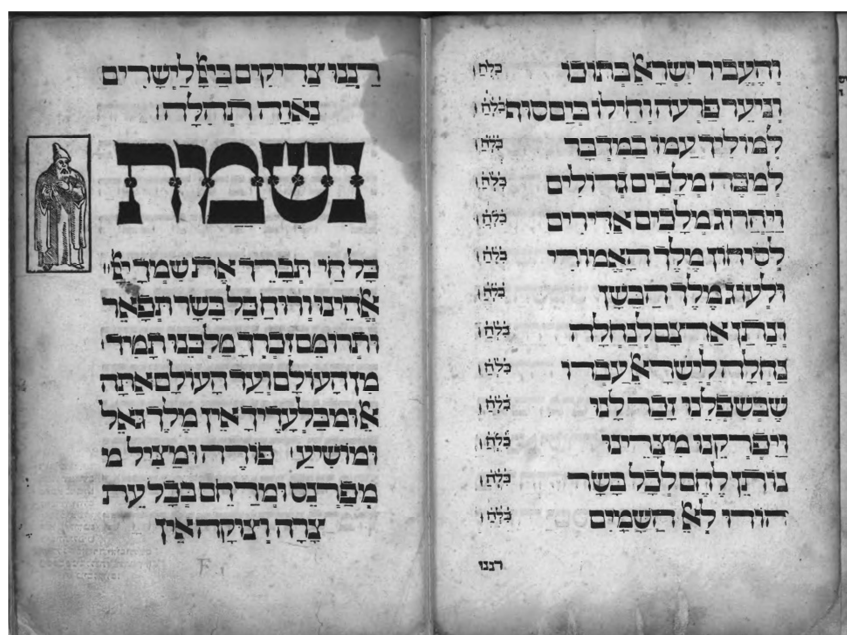 והעביר ישראל בתוכו כלח
וניער פרעה וחילו בים סוף כלח
למוליך עמו במדבר כלח
למכה מלכים גדולים כלח
ויהרוג מלכים אדירים כלח
לסיחון מלך האמורי כלח
ולעוג מלך הבשן כלח
ונתן ארצם לנחלה כלח
נחלה לישראל עבדו כלח
שבשפלנו זכר לנו כלח
ויפרקנו מצרינו כלח
נותן לחם לכל בשר כלח
הודו לאל השמים כלח
רננו
רננו צדיקים ביי לישרים
נאוה תהלה
נשמת
כל חי תברך את שמך יי
אלהינו ורוח כל בשר תפאר
ותרומם זכרך מלכנו תמיד
מן העולם ועד העולם אתה
אל ומבלעדיך אין מלך גואל
ומושיע פודה ומציל
מפרנס ומרחם בכל עת
צרה וצוקה אין